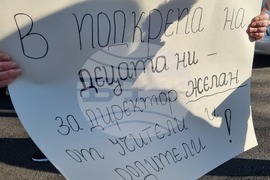 В ПОДКРЕПА НА
ДЕЦАТА НИ -
ЗА ДИРЕКТОР ЖЕЛАН
ОТ УЧИТЕЛИ И
РОДИТЕЛИ!